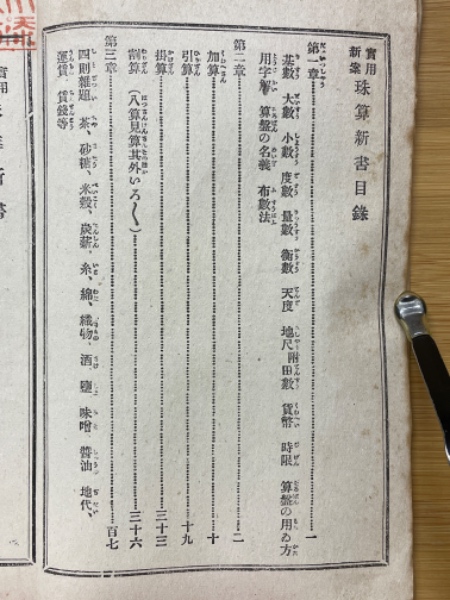 實用
新案 珠算新書目錄
第一章……一
基數 大數 小數 度數 量數 衡數 天度 地尺附田數 貨幣 時限 算盤の用ゐ方
用字 算盤の名義 布數法
第二章……二
加算……十
引算……十九
掛算……三十三
割算(八算見算其外いろ〱)……三十六
第三章……百七
四則雜題 茶、砂糖、米穀、炭薪、糸、綿、織物、酒、鹽 味噌、醬油 地代、
運賃、賃錢等